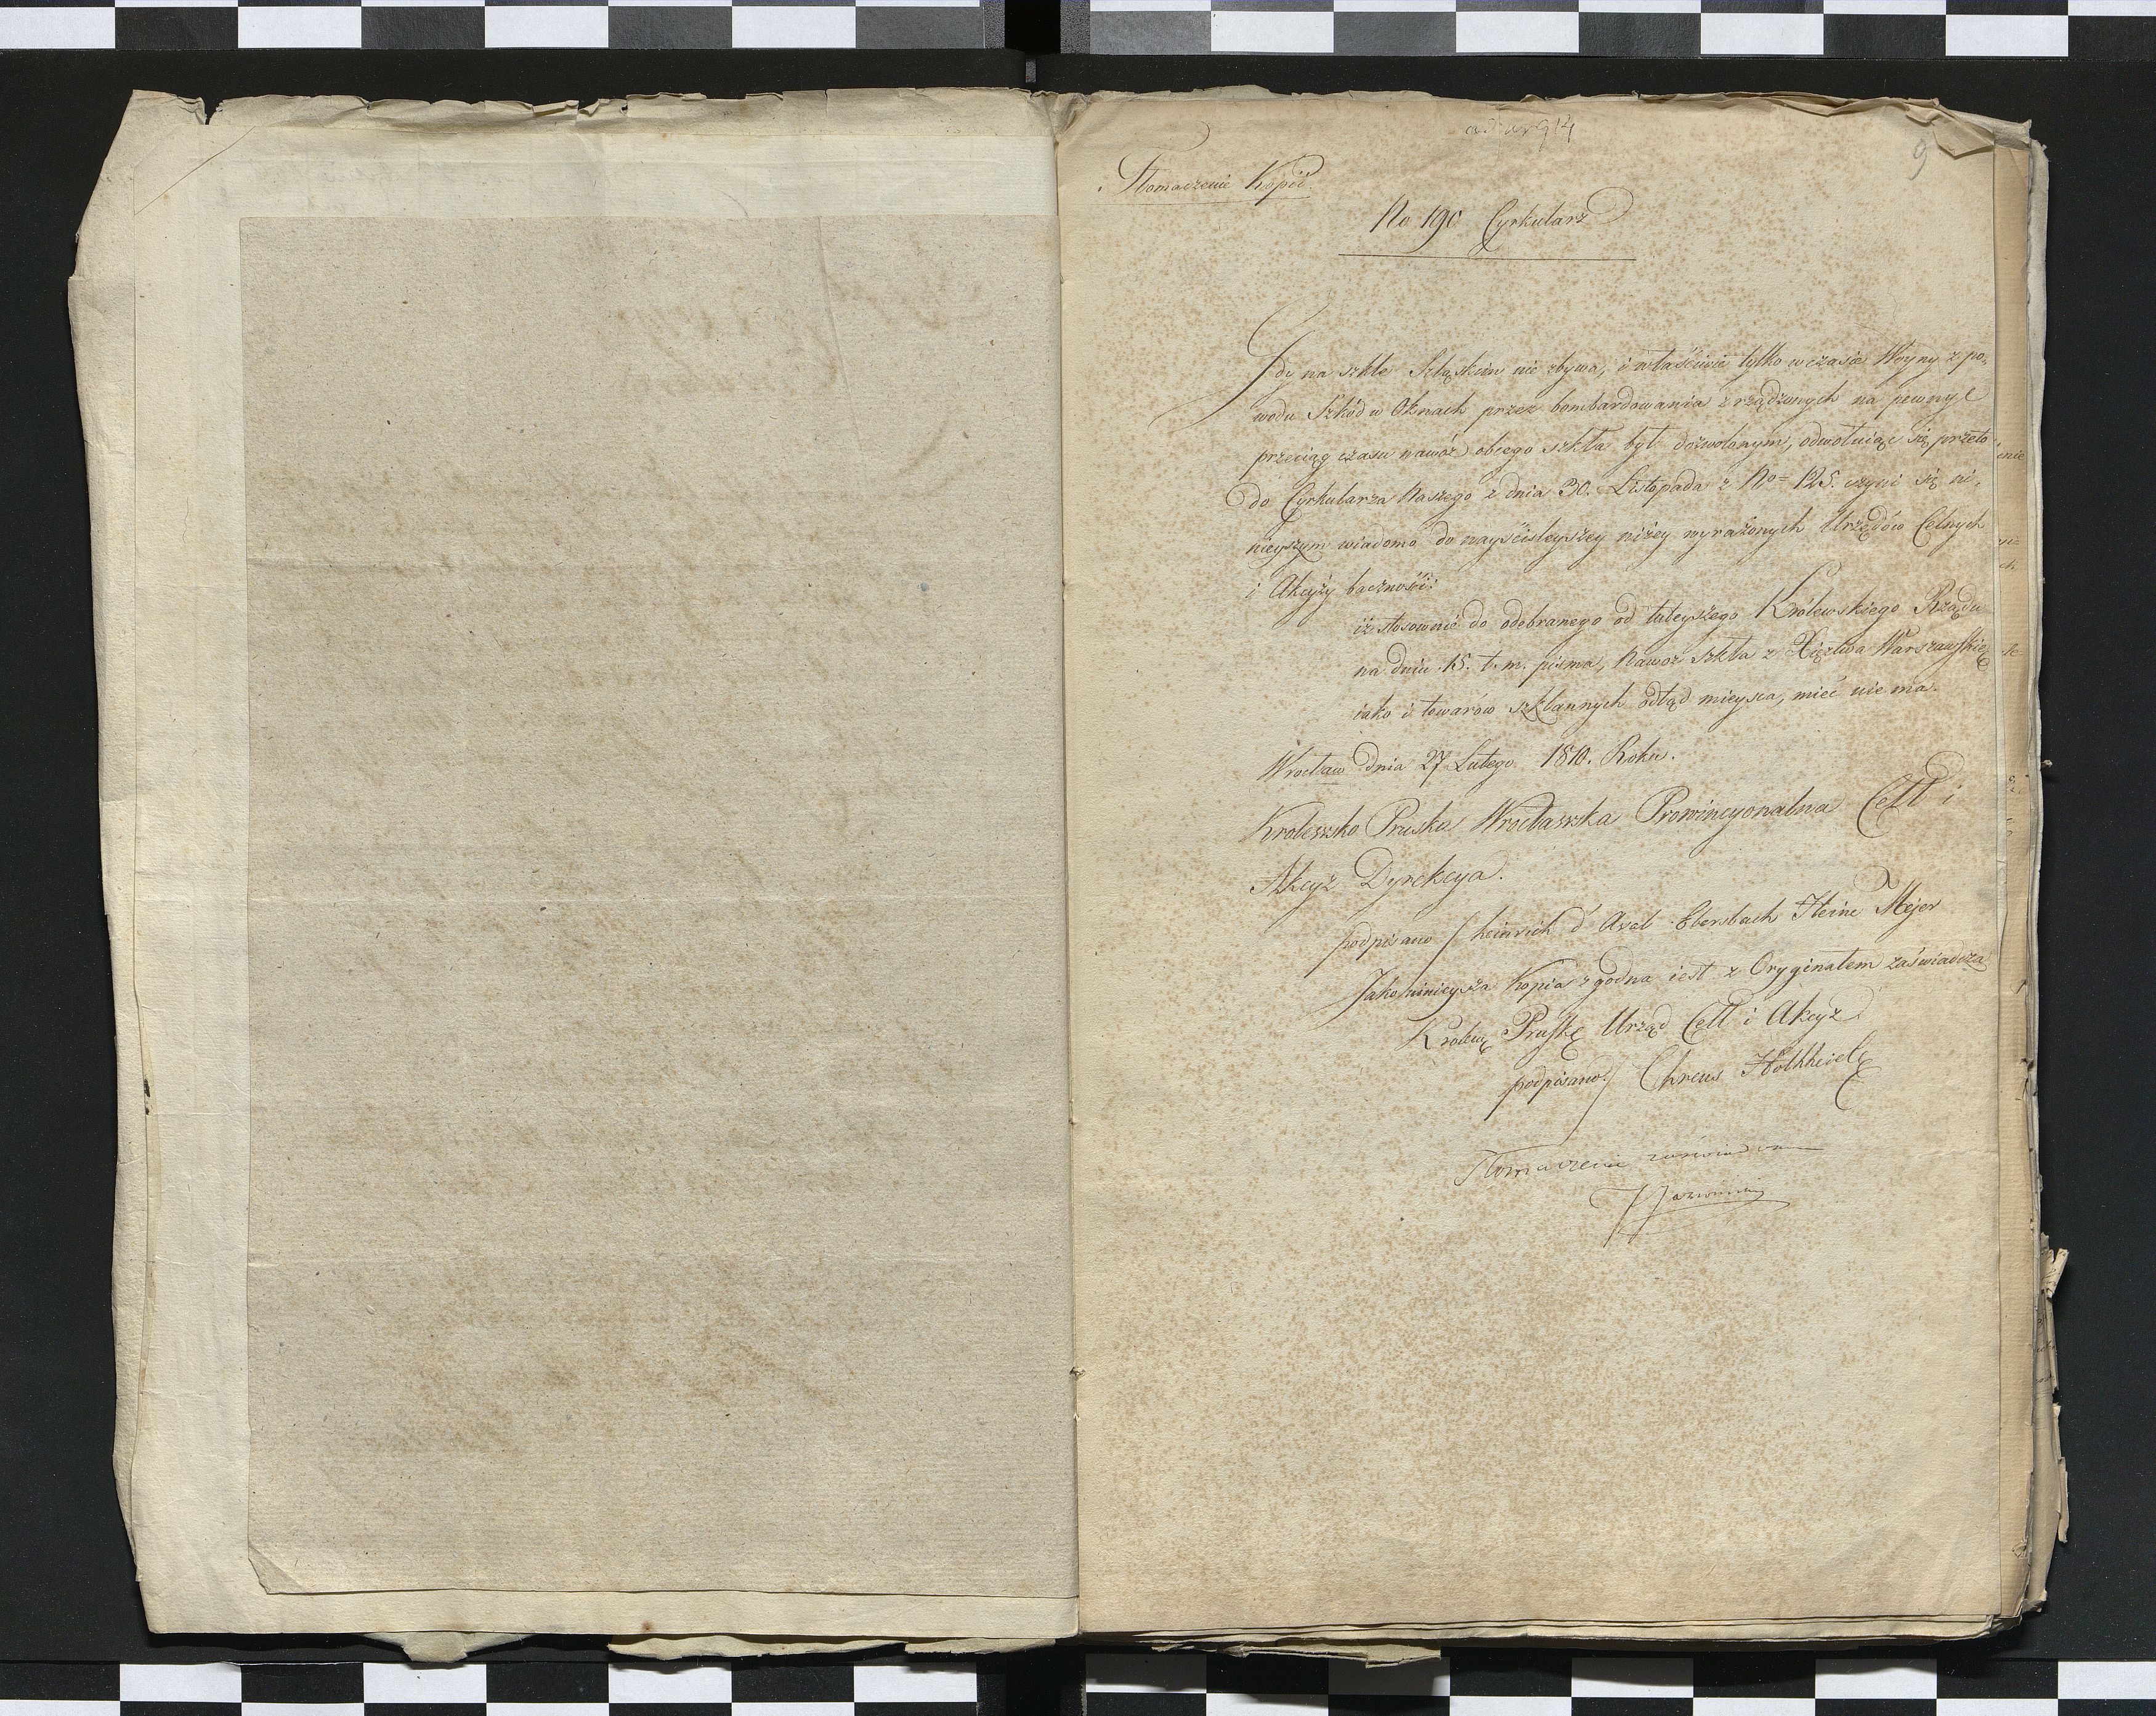 ad nr 914
9
Tłomaczenie Kopii
No 190 Cyrkularz
Gdy na szkle Szląskim nie zbywa, i właściwie tylko w czasie Woyny z po-
wodu Szkód w Oknach przez bombardowania zrządzonych na pewnyc
przeciąg czasu nawóz obcego szkła był dozwolonym, odwołuiąc się przeto
do Cyrkularza Naszego z dnia 30. Listopada z No= 125. czyni się ni-
nieyszym wiadomo do nayściśleyszey niżey wyrażonych Urzędów Celnych
i Akcyży baczności:
iż stosownie do odebranego od tuteyszego Królewskiego Rządu
na dniu 15. t. m. pisma, Nawoz szkła z Xięztwa Warszawskie
iako i towarów szklannych odtąd mieysca, mieć nie ma.
Wrocław dnia 27 Lutego 1810. Roku.
Krolewsko Pruska Wrocławska Prowincyonalna Cell i
Akcyz Dyrekcya.
podpisano / heinrich d' Axel Ebersbach Heine Mejer
Jako ninieysza Kopia zgodna iest z Oryginałem zaświadcza
Krolew Pruskę Urząd Cell i Akcyz
podpisano /
Tłomaczenie zaświadcza